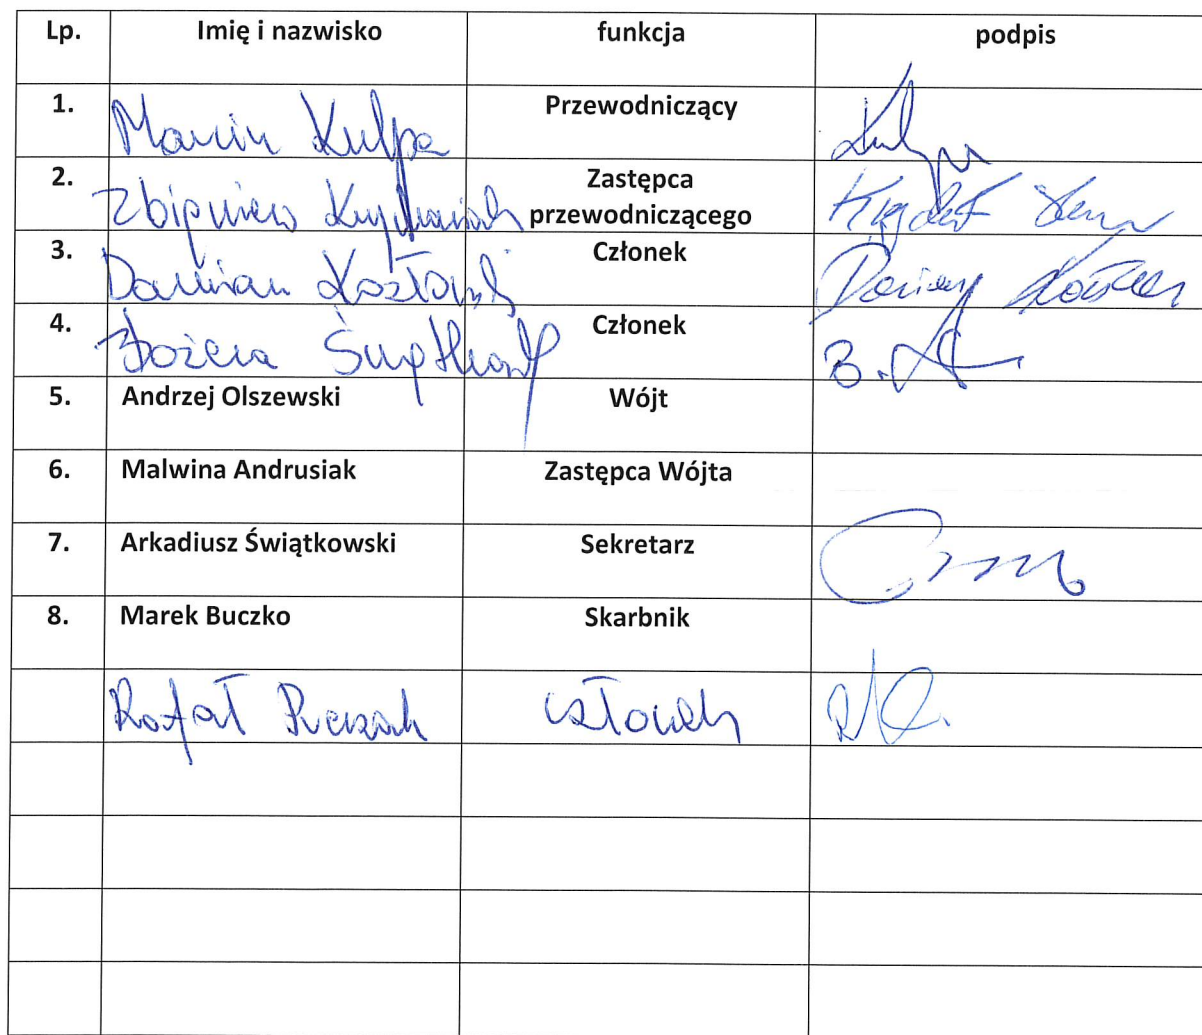 Lp. Imię i nazwisko funkcja podpis
1. Marcin Kulpa Przewodniczący
2. Zbigniew Zastępca
przewodniczącego
3. Damian Kozłowski Członek
4. Bożena Członek
B.
5. Andrzej Olszewski Wójt
6. Malwina Andrusiak Zastępca Wójta
7. Arkadiusz Świątkowski Sekretarz
8. Marek Buczko Skarbnik
Rafał członek